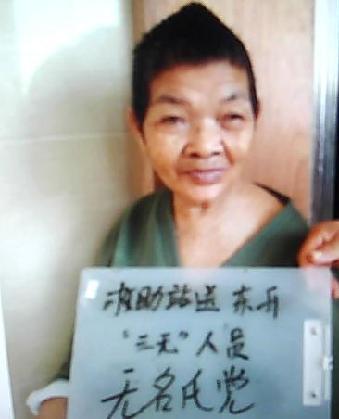 救助站送 东升
"三无"人员
无名氏党